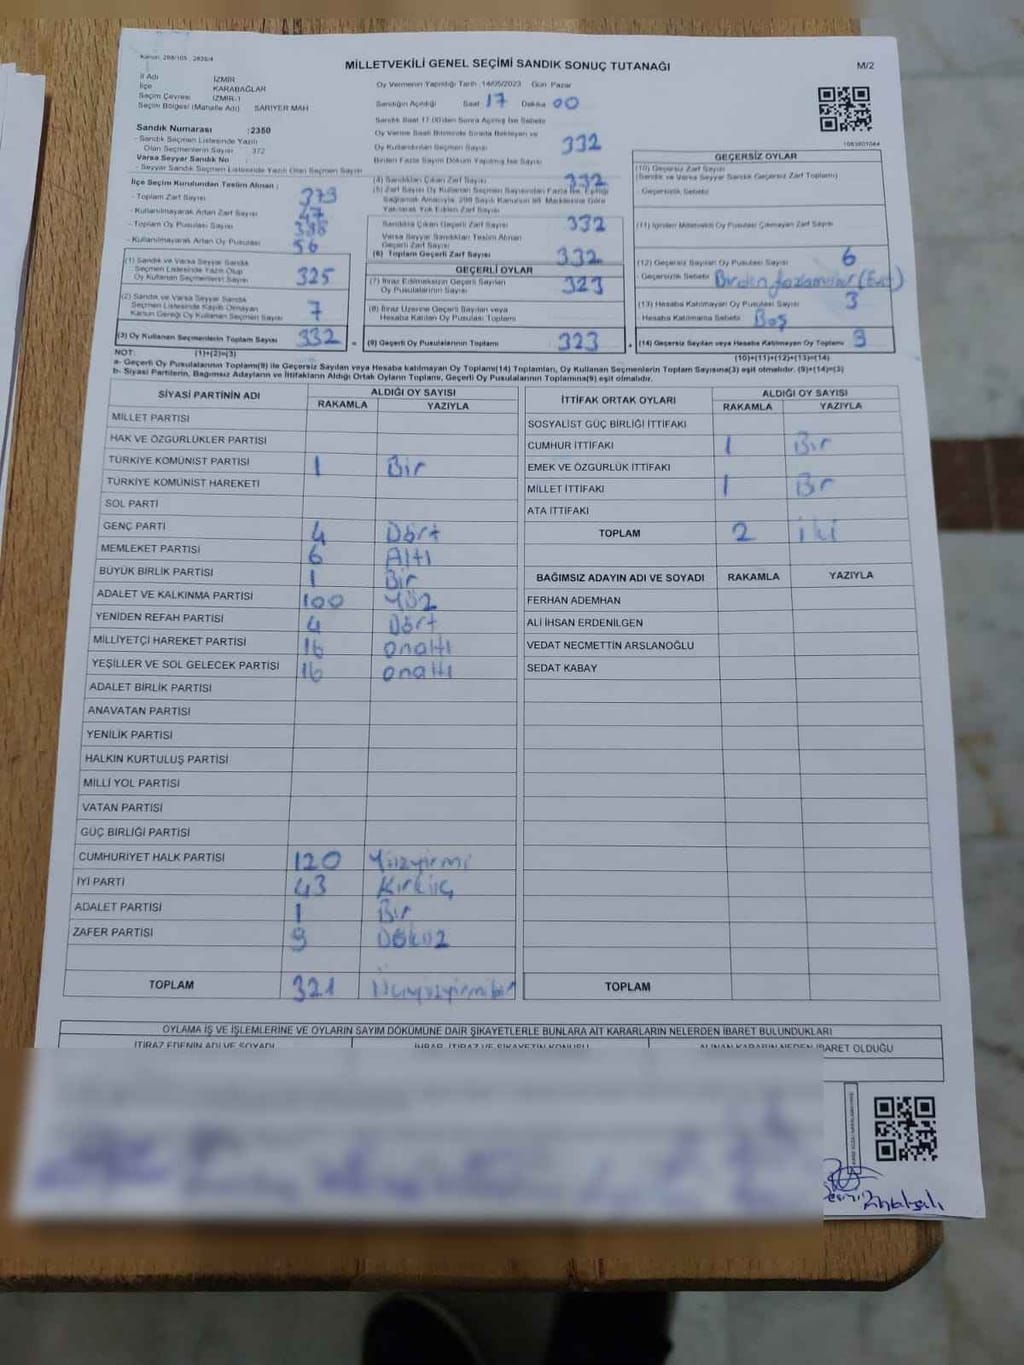 Kanun: 298/105 , 2839/4
MİLLETVEKİLİ GENEL SEÇİMİ SANDIK SONUÇ TUTANAĞI
M/2
İl Adı İZMİR
İlçe KARABAĞLAR
Seçim Çevresi İZMİR-1
Seçim Bölgesi (Mahalle Adı) SARIYER MAH
Sandık Numarası :2350
- Sandık Seçmen Listesinde Yazılı
Olan Seçmenlerin Sayısı : 372
Varsa Seyyar Sandık No
- Seyyar Sandık Seçmen Listesinde Yazılı Olan Seçmen Sayısı
İlçe Seçim Kurulundan Teslim Alınan :
- Toplam Zarf Sayısı 379
- Kullanılmayarak Artan Zarf Sayısı 47
- Toplam Oy Pusulası Sayısı 388
- Kullanılmayarak Artan Oy Pusulası 56
(1) Sandık ve Varsa Seyyar Sandık
Seçmen Listesinde Yazılı Olup
Oy Kullanan Seçmenlerin Sayısı 325
(2) Sandık ve Varsa Seyyar Sandık
Seçmen Listesinde Kaydı Olmayan
Kanun Gereği Oy Kullanan Seçmen Sayısı 7
(3) Oy Kullanan Seçmenlerin Toplam Sayısı 332
Oy Vermenin Yapıldığı Tarih :14/05/2023 Gün: Pazar
Sandığın Açıldığı Saat 17 Dakika 00
Sandık Saat 17.00'den Sonra Açılmış İse Sebebi
Oy Verme Saati Bitiminde Sırada Bekleyen ve
Oy Kullandırılan Seçmen Sayısı 332
Birden Fazla Sayım Döküm Yapılmış İse Sayısı
(4) Sandıktan Çıkan Zarf Sayısı 332
(5) Zarf Sayısı Oy Kullanan Seçmen Sayısından Fazla İse, Eşitliği
Sağlamak Amacıyla, 298 Sayılı Kanunun 98. Maddesine Göre
Yakılarak Yok Edilen Zarf Sayısı
Sandıkta Çıkan Geçerli Zarf Sayısı 332
Varsa Seyyar Sandıktan Teslim Alınan
Geçerli Zarf Sayısı
(6) Toplam Geçerli Zarf Sayısı 332
GEÇERLİ OYLAR
(7) İtiraz Edilmeksizin Geçerli Sayılan
Oy Pusulalarının Sayısı 323
(8) İtiraz Üzerine Geçerli Sayılan veya
Hesaba Katılan Oy Pusulası Toplamı
= (9) Geçerli Oy Pusulalarının Toplamı 323
GEÇERSİZ OYLAR
(10) Geçersiz Zarf Sayısı
(Sandık ve Varsa Seyyar Sandık Geçersiz Zarf Toplamı)
- Geçersizlik Sebebi
(11) İçinden Milletvekili Oy Pusulası Çıkmayan Zarf Sayısı
(12) Geçersiz Sayılan Oy Pusulası Sayısı 6
- Geçersizlik Sebebi Birden fazla mühür
(13) Hesaba Katılmayan Oy Pusulası Sayısı 3
- Hesaba Katılmama Sebebi Boş
+ (14) Geçersiz Sayılan veya Hesaba Katılmayan Oy Toplamı 9
NOT: (1)+(2)=(3)
(10)+(11)+(12)+(13)=(14)
a- Geçerli Oy Pusulalarının Toplamı(9) ile Geçersiz Sayılan veya Hesaba katılmayan Oy Toplamı(14) Toplamları, Oy Kullanan Seçmenlerin Toplam Sayısına(3) eşit olmalıdır. (9)+(14)=(3)
b- Siyasi Partilerin, Bağımsız Adayların ve İttifakların Aldığı Ortak Oyların Toplamı, Geçerli Oy Pusulalarının Toplamına(9) eşit olmalıdır.
SİYASİ PARTİNİN ADI ALDIĞI OY SAYISI
RAKAMLA YAZIYLA
MİLLET PARTİSİ
HAK VE ÖZGÜRLÜKLER PARTİSİ
TÜRKİYE KOMÜNİST PARTİSİ 1 Bir
TÜRKİYE KOMÜNİST HAREKETİ
SOL PARTİ
GENÇ PARTİ 4 Dört
MEMLEKET PARTİSİ 6 Altı
BÜYÜK BİRLİK PARTİSİ 1 Bir
ADALET VE KALKINMA PARTİSİ 100 Yüz
YENİDEN REFAH PARTİSİ 4 Dört
MİLLİYETÇİ HAREKET PARTİSİ 16 onaltı
YEŞİLLER VE SOL GELECEK PARTİSİ 16 onaltı
ADALET BİRLİK PARTİSİ
ANAVATAN PARTİSİ
YENİLİK PARTİSİ
HALKIN KURTULUŞ PARTİSİ
MİLLİ YOL PARTİSİ
VATAN PARTİSİ
GÜÇ BİRLİĞİ PARTİSİ
CUMHURİYET HALK PARTİSİ 120 Yüzyirmi
İYİ PARTİ 43 Kırküç
ADALET PARTİSİ 1 Bir
ZAFER PARTİSİ 9 Dokuz
TOPLAM 321 Üçyüzyirmibir
İTTİFAK ORTAK OYLARI ALDIĞI OY SAYISI
RAKAMLA YAZIYLA
SOSYALİST GÜÇ BİRLİĞİ İTTİFAKI
CUMHUR İTTİFAKI 1 Bir
EMEK VE ÖZGÜRLÜK İTTİFAKI
MİLLET İTTİFAKI 1 Bir
ATA İTTİFAKI
TOPLAM 2 iki
BAĞIMSIZ ADAYIN ADI VE SOYADI RAKAMLA YAZIYLA
FERHAN ADEMHAN
ALİ İHSAN ERDENİLGEN
VEDAT NECMETTİN ARSLANOĞLU
SEDAT KABAY
TOPLAM
OYLAMA İŞ VE İŞLEMLERİNE VE OYLARIN SAYIM DÖKÜMÜNE DAİR ŞİKAYETLERLE BUNLARA AİT KARARLARIN NELERDEN İBARET BULUNDUKLARI
İTİRAZ EDENİN ADI VE SOYADI İHBAR, İTİRAZ VE ŞİKAYETİN KONUSU ALINAN KARARIN NEDEN İBARET OLDUĞU